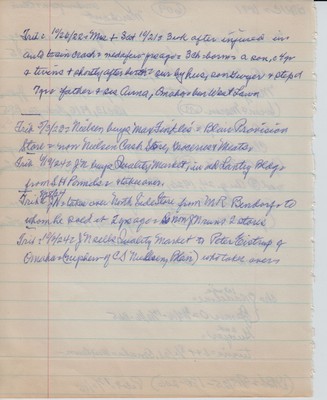 Trib: 10/26/22: Mae + Sat 10/21 3 wk after injured in
auto train crash & mother of preag: 3 ch: born a son, 4 yr
& twins & shortly after both: sur by hus, son & step d
7 yr & father & sis Anna, Omaha: bur West Lawn
Trib 2/7/25: Nielsen buys Max Finkel's Blair Provision
Store & now Nielsen Cash Store, Groceries Meats
Trib 4/18/40: J N buys Quality Market, in old Lantry Bldg
from S H Pemble & takes over
Trib J N takes over North Side Store from M R Bendorf to
whom he sold it 2 yr ago: now J N runs 2 stores
Trib: 10/8/42: J N sells Quality Market to Peter Gistrup of
Omaha (nephew of C S Nielsen, Blair) who takes over